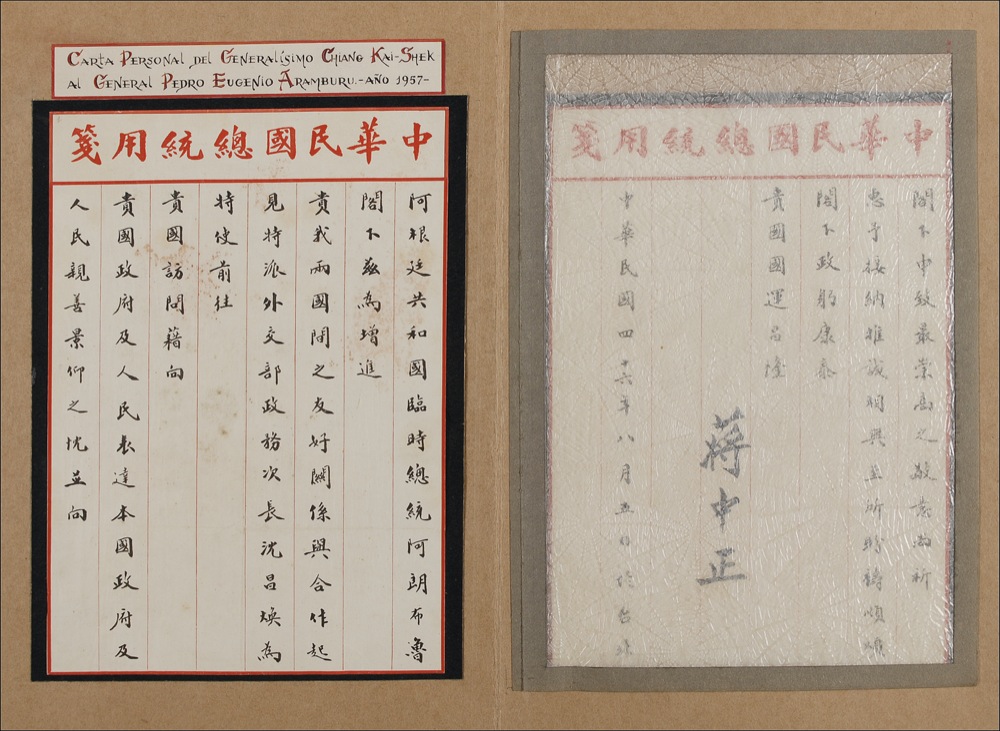 Carta Personal del Generalísimo Chiang Kai-Shek
al General Pedro Eugenio Aramburu.-Año 1957-
中華民國總統用箋
阿根廷共和國臨時總統阿朗布魯
閣下茲為增進
貴我兩國間之友好關係與合作起
見特派外交部政務次長沈昌煥為
特使前往
貴國訪問藉向
貴國政府及人民表達本國政府及
人民親善景仰之忱並向
中華民國總統用箋
閣下申致最崇高之敬意尚祈
惠予接納推誠相與至所盼禱順維
閣下政躬康泰
貴國國運昌隆
蔣中正
中華民國四十六年八月五日於台北